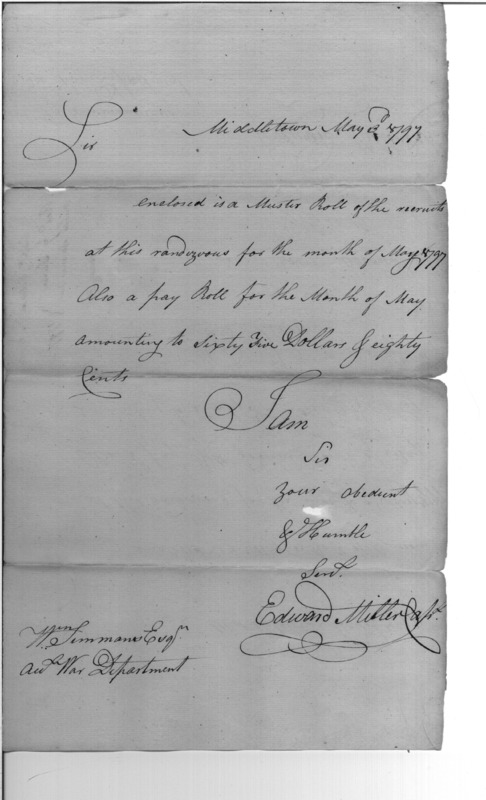 Middletown May 1797
Sir
enclosed is a Muster Roll of the recruits
at this randezvous for the month of May 1797
Also a pay Roll for the Month of May
amounting to Sixty Five Dollars & eighty
Cents
I am
Sir
your obedient
& Humble
Servt.
Edward Miller Capt.
Wm Simmans Esqr
War Department